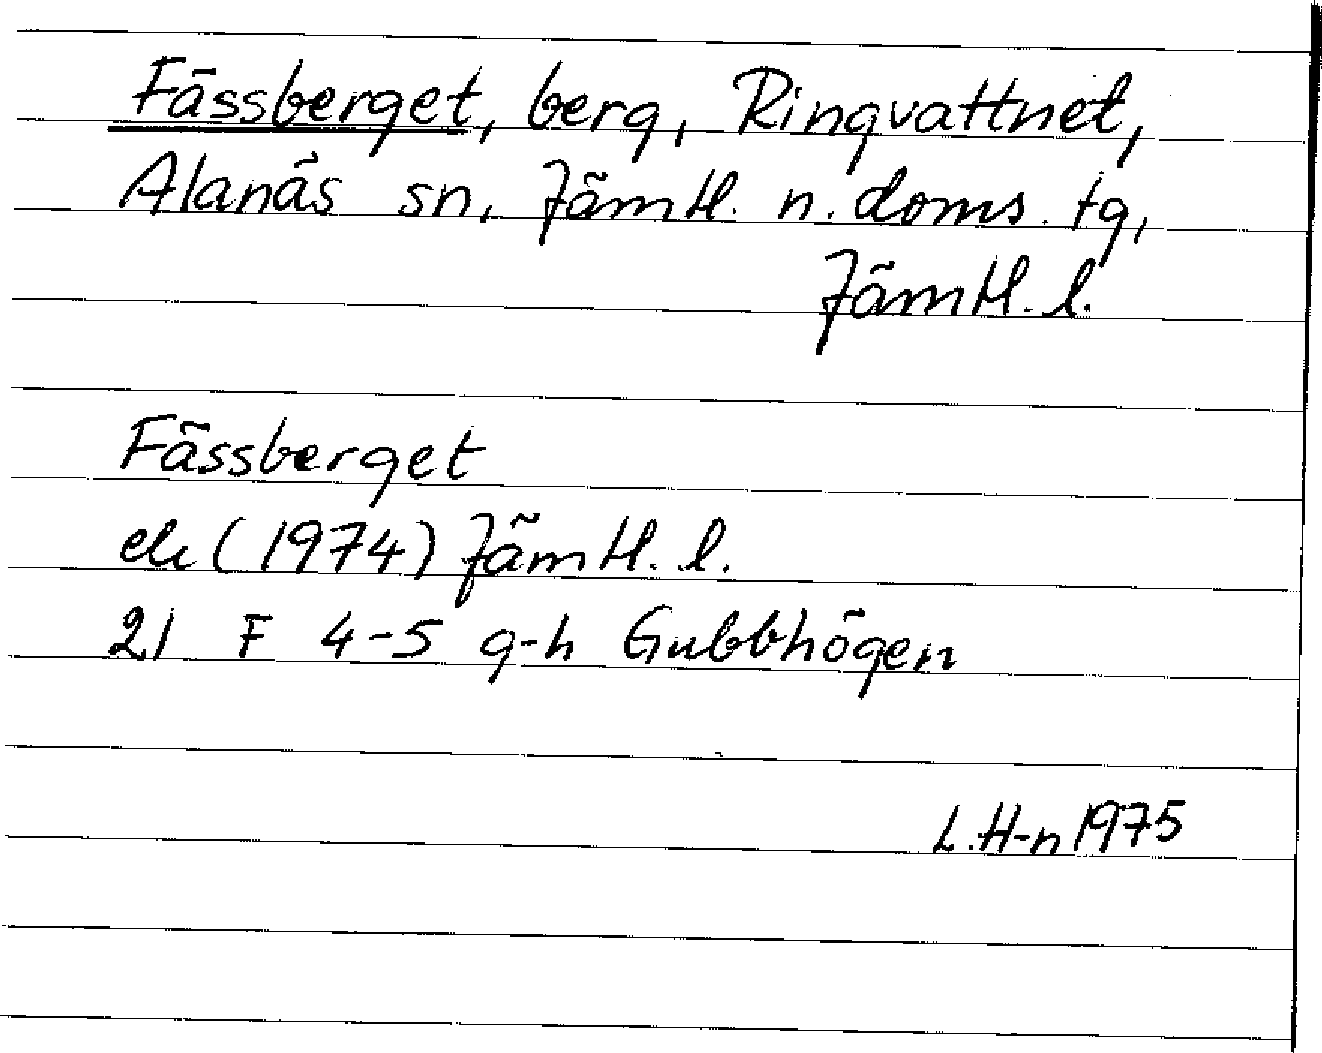 Fässberget, berg, Ringvattnet,
Alanäs sn, Jämtl. n. doms. tg,
Jämtl. l.
Fässberget
ek (1974) Jämtl. l.
21 F 4-5 g-h Gubbhögen
L. H-n 1975